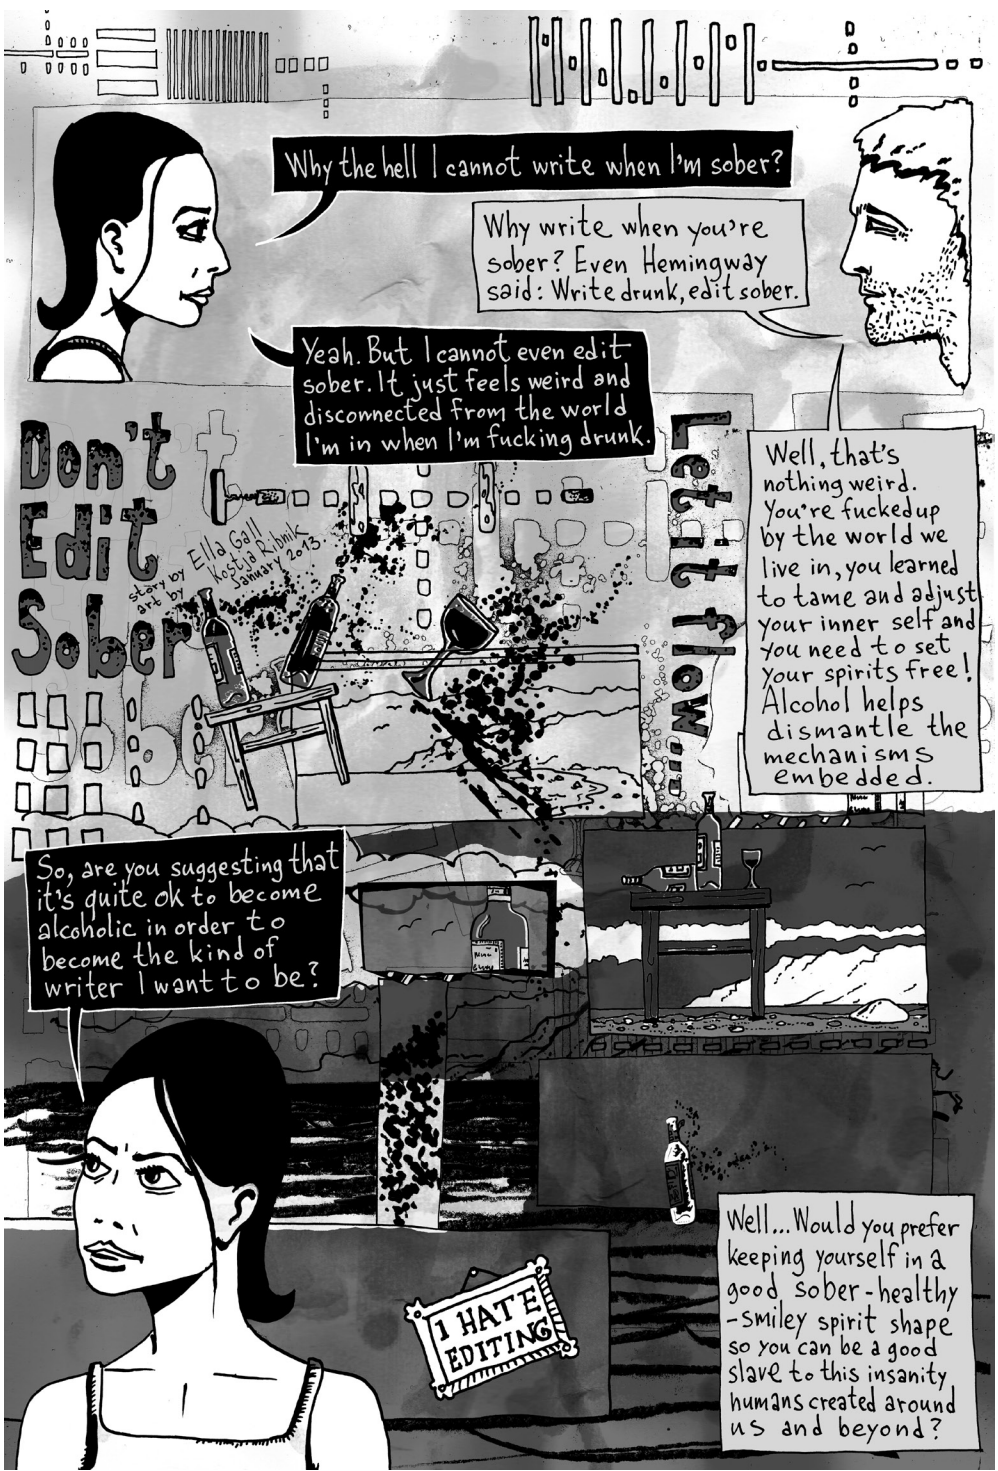 Why the hell I cannot write when I'm sober?
Why write when you're
sober? Even Hemingway
said: Write drunk, edit sober.
Yeah. But I cannot even edit
sober. It just feels weird and
disconnected from the world
I'm in when I'm fucking drunk.
Don't
Edit
Sober
story by Ella Gall
art by Kostja Ribnik
January 2013.
Let it flow...
Well, that's
nothing weird.
You're fucked up
by the world we
live in, you learned
to tame and adjust
your inner self and
you need to set
your spirits free!
Alcohol helps
dismantle the
mechanisms
embedded.
So, are you suggesting that
it's quite ok to become
alcoholic in order to
become the kind of
writer I want to be?
I HATE
EDITING
Well...Would you prefer
keeping yourself in a
good sober-healthy
-smiley spirit shape
so you can be a good
slave to this insanity
humans created around
us and beyond?